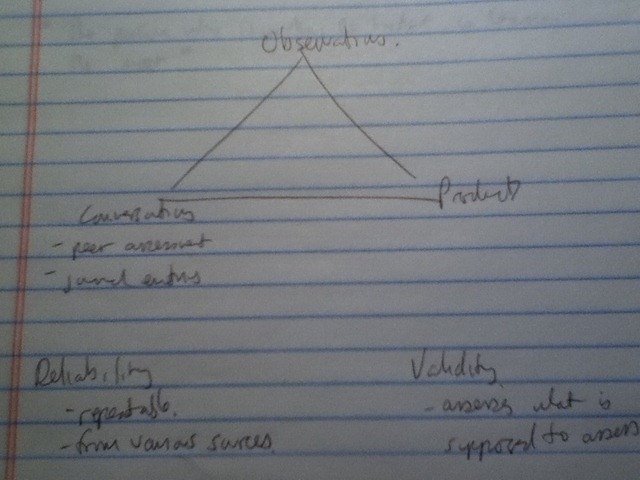 Observations.
Products
Conversations
- peer assessment
- journal entries
Reliability
- repeatable.
- from various sources.
Validity
- assesses what is
supposed to assess